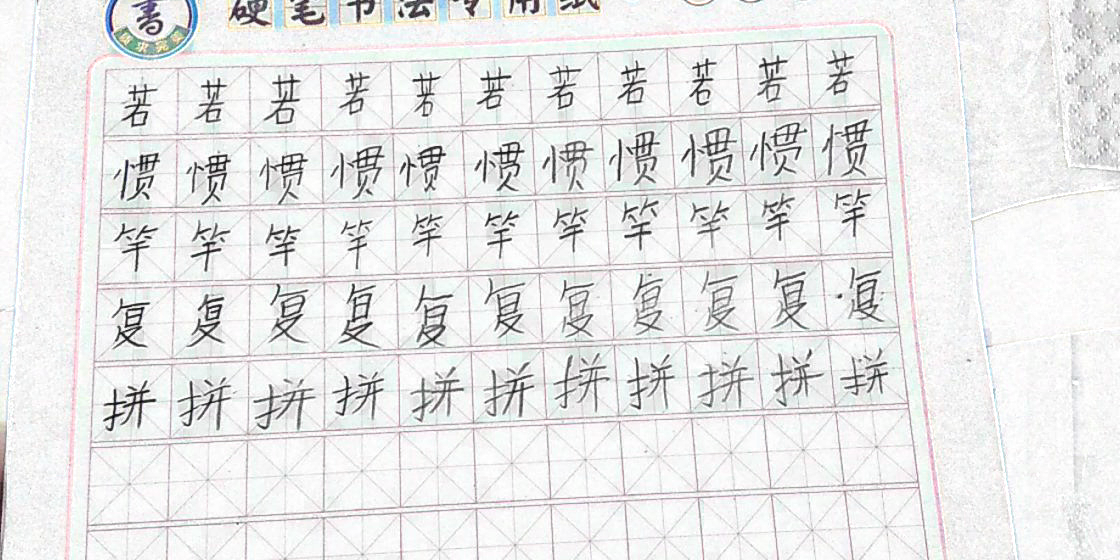 硬笔书法专用纸
书
追求完美
若若若若若若若若若若若
惯惯惯惯惯惯惯惯惯惯惯
竿竿竿竿竿竿竿竿竿竿竿
复复复复复复复复复复复
拼拼拼拼拼拼拼拼拼拼拼